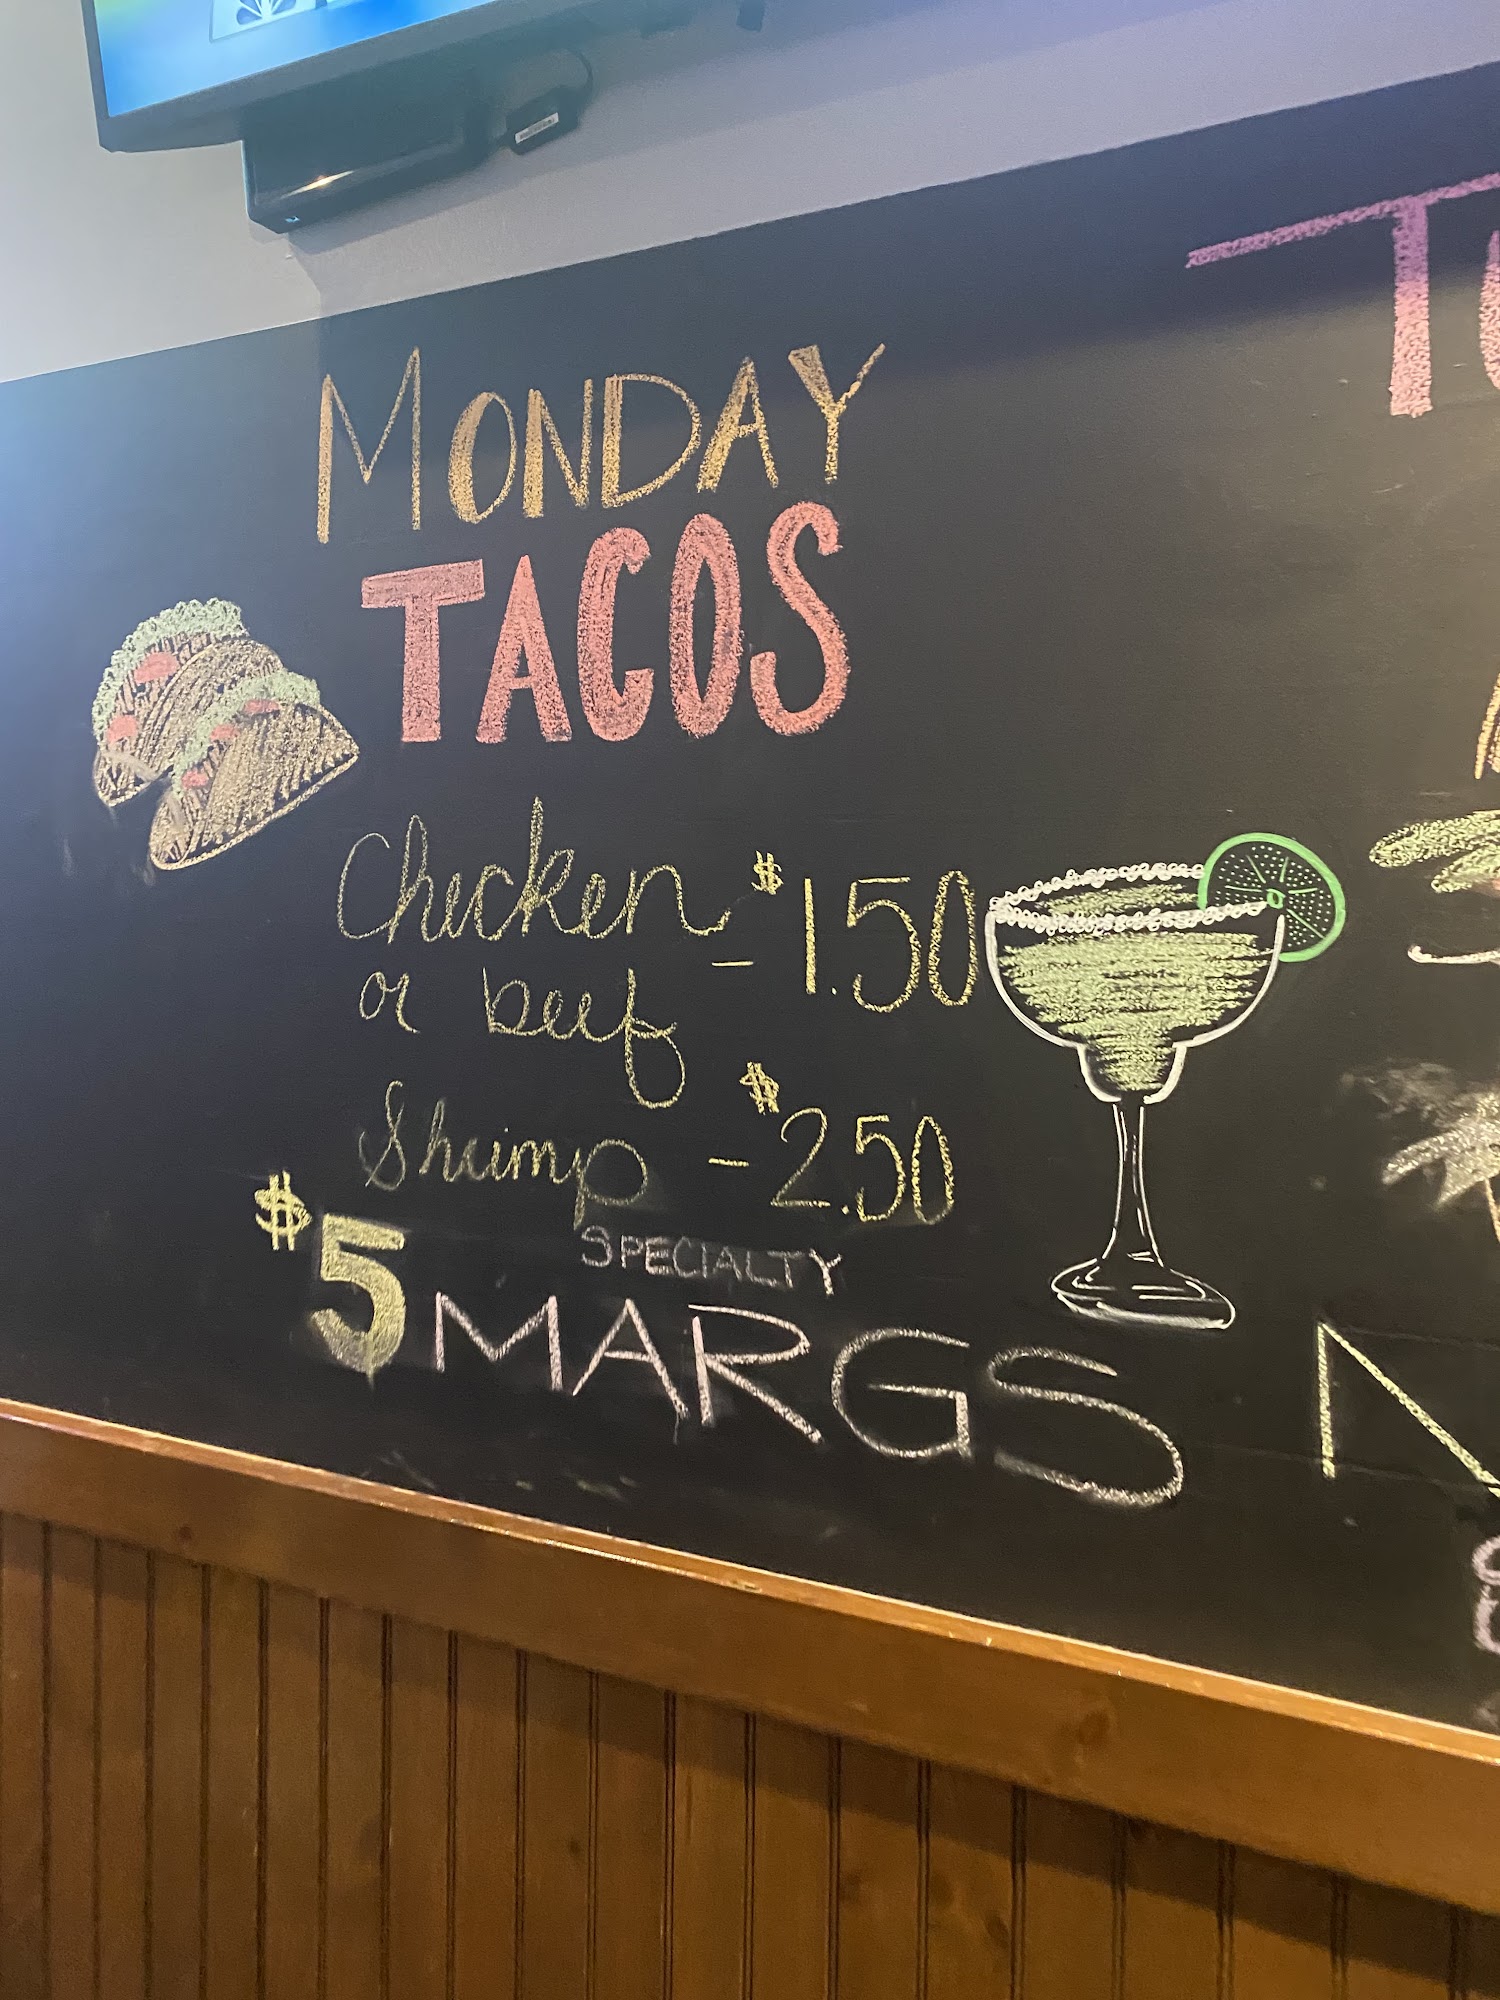 MONDAY
TACOS
Chicken
or beef - $1.50
Shrimp - $2.50
SPECIALTY
$5 MARGS